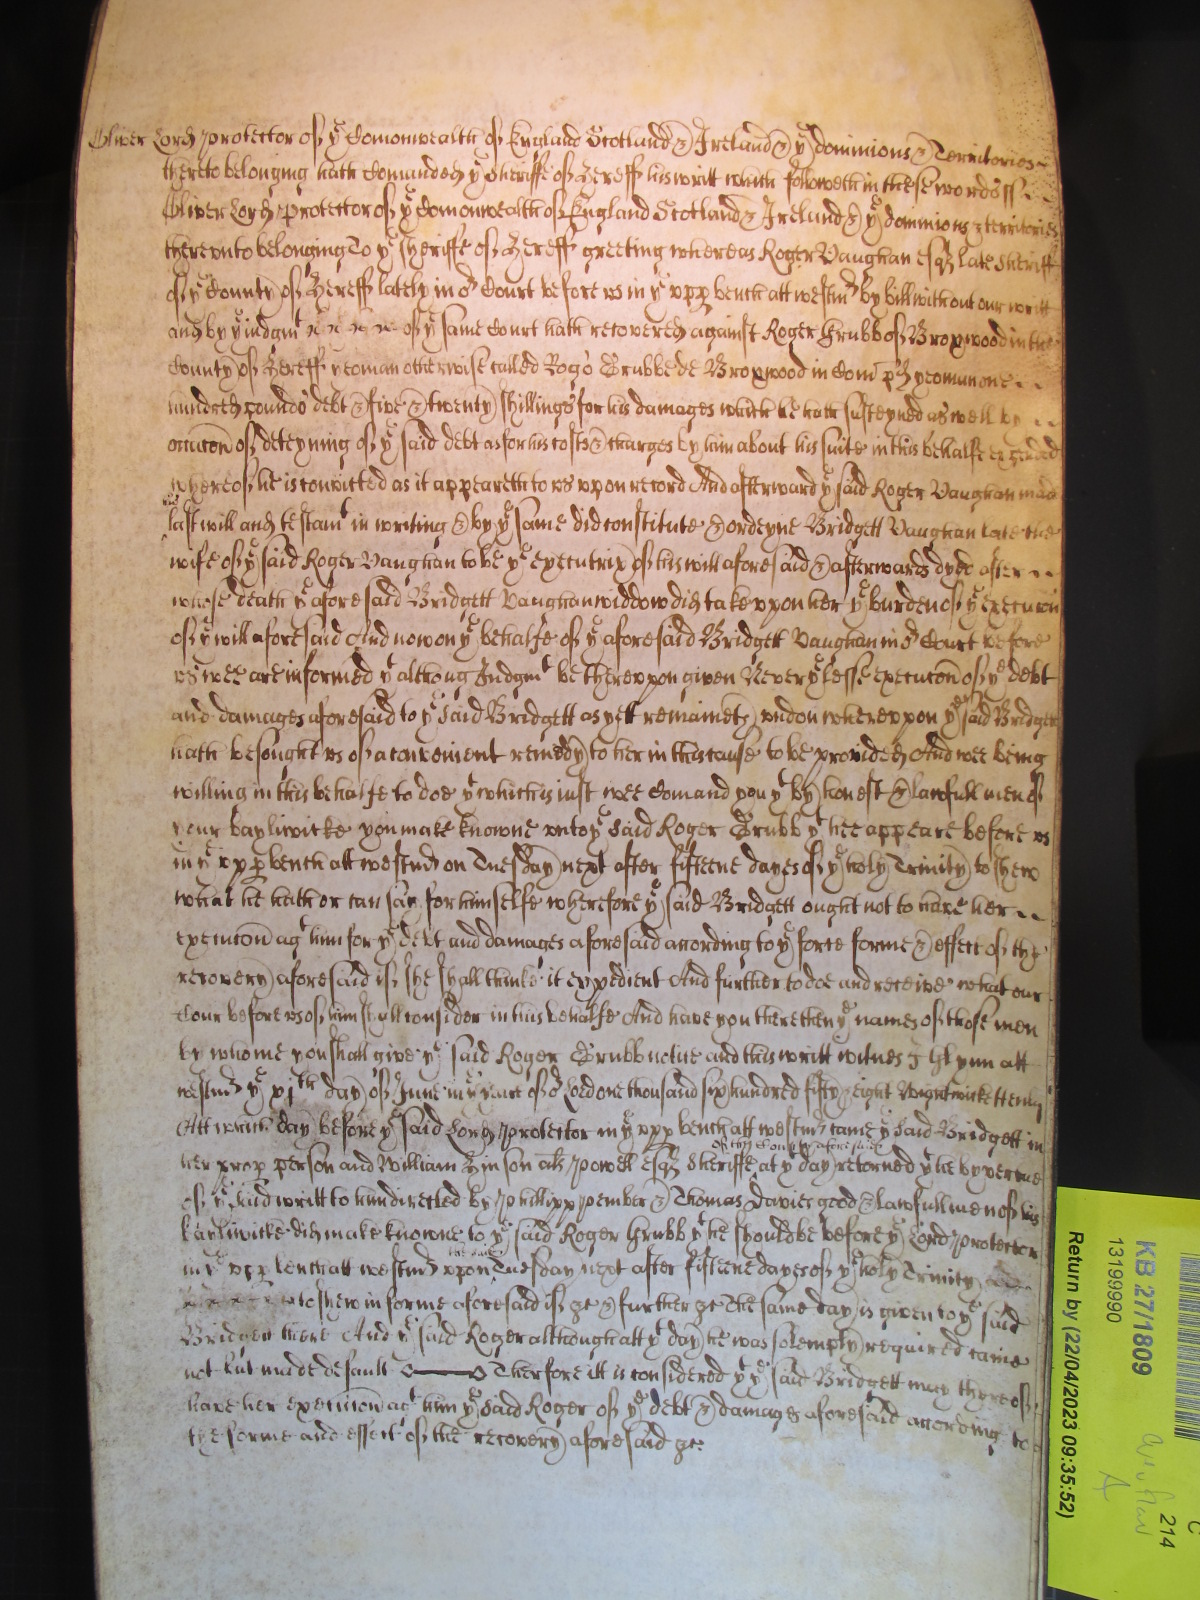 Oliver Lord Protector of ye Comonwealth of England Scotland & Ireland & ye dominions & Territories
thereto belonging hath Comanded ye Sheriffe of Hereff his writt which followeth in these words ss
Oliver Lord Protector of ye Comonwealth of England Scotland & Ireland & ye dominions & territories
thereunto belonging To ye Sheriffe of Hereff greeting whereas Roger Vaughan esqr late Sheriff
of ye County of Hereff lately in or Court before us in ye upp bench att westmr by bill without our writt
and by ye iudgmt of ye same Court hath recovered against Roger Grubb of Broxwood in the
County of Hereff yeoman otherwise called Rogo Grubbe de Broxwood in Com pred yeoman one
hundred pounds debt & five & twenty shillings for his damages which he hath susteyned as well by
occacon of deteyning of ye said debt as for his costs & charges by him about his suite in this behalfe expended
whereof he is convicted as it appeareth to us upon record And afterward ye said Roger Vaughan made
his last will and testamt in writing & by ye same did constitute & ordeyne Bridgett Vaughan late the
wife of ye said Roger Vaughan to be ye executrix of his will aforesaid & afterwards dyed after
whose death ye aforesaid Bridgett Vaughan widdow did take upon her ye burden of ye execucon
of ye will aforesaid And now on ye behalfe of ye aforesaid Bridgett Vaughan in or Court before
us wee are informed yt althoug Iudgmt be thereupon given Neverye lesse execucon of ye debt
and damages aforesaid to ye said Bridgett as yett remaineth undon whereupon ye said Bridgett
hath besought us of a convenient remedy to her in this cause to be provided And wee being
willing in this behalfe to doe yt which is iust wee Comand you yt by honest & lawfull men of
your bayliwicke you make knowne unto ye said Roger Grubb yt hee appeare before us
in ye upp bench att westmr on Tuesday next after fifteene dayes of ye holy Trinity to shew
what he hath or can say for himselfe wherefore ye said Bridgett ought not to have her
execucon agt him for ye debt and damages aforesaid according to ye force forme & effect of the
recovery aforesaid if she shall thinke it expedient And further to doe and receive what our
Cour before us of him shall consider in this behalfe And have you there then ye names of those men
by whome you shall give ye said Roger Grubb notice and this writt witnes J Glynn att
westmr ye xjth day of June in ye yeare of or Lord one thousand six hundred fifty & eight Wightwicke Henly
Att which day before ye said Lord Protector in ye upp bench att westmr came ye said Bridgett in
her prop person and William Hinson als Powell esqr Sheriffe of the County aforesaid at yt day retorned yt he by vertue
of ye said writt to him directed by Phillipp Pember & Thomas Davies good & lawfull men of his
bayliwicke did make knowne to ye said Roger Grubb yt he should be before ye Lord Protector
in ye upp bench att westmr upon the said Tuesday next after fifteene dayes of ye holy Trinity
to shew in forme aforesaid if &c & further &c The same day is given to ye said
Bridgett there And ye said Roger although att yt day he was solemply required came
not but made default Therfore itt is considered yt ye said Bridgett may thereof
have her execucon agt him ye said Roger of ye debt & damages aforesaid according to
the forme and effect of the recovery aforesaid &c
KB 27/1809
13199990
Return by (22/04/2023 09:35:52)
C
214
A